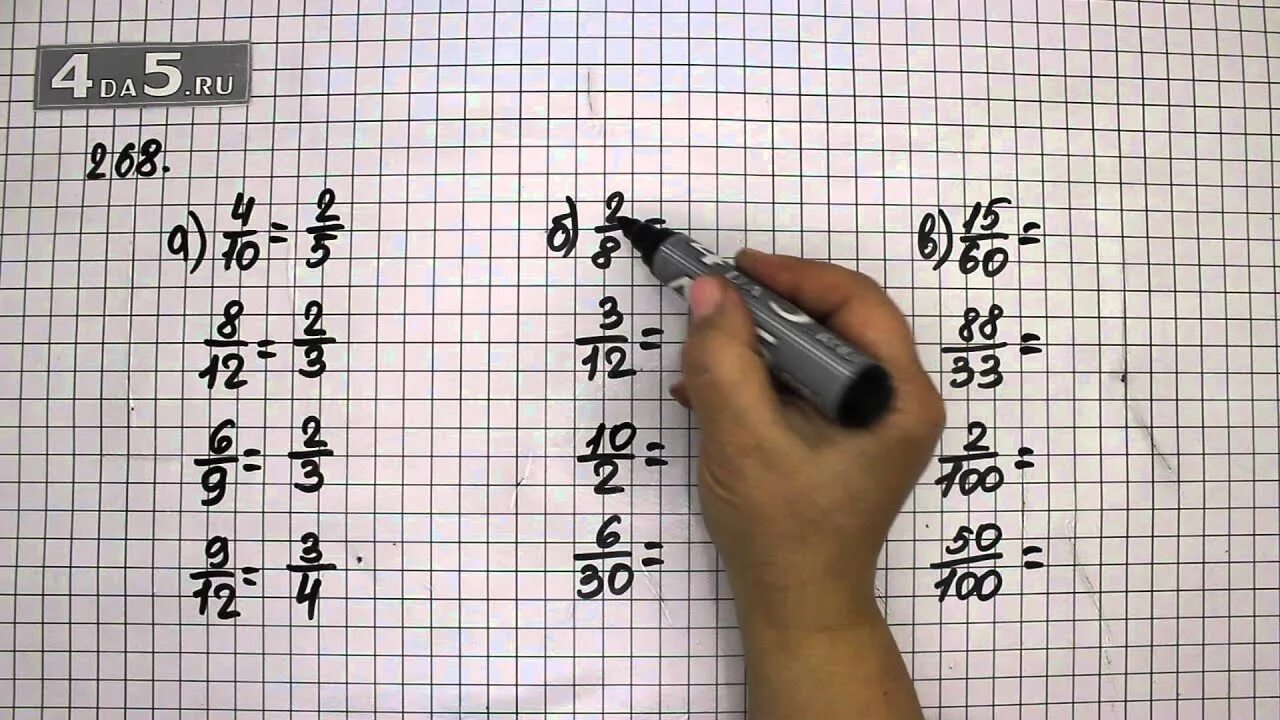 4DA5.RU
268.
а) 4/10 = 2/5
8/12 = 2/3
6/9 = 2/3
9/12 = 3/4
б) 2/8 =
3/12 =
10/2 =
6/30 =
в) 15/60 =
88/33 =
2/100 =
50/100 =